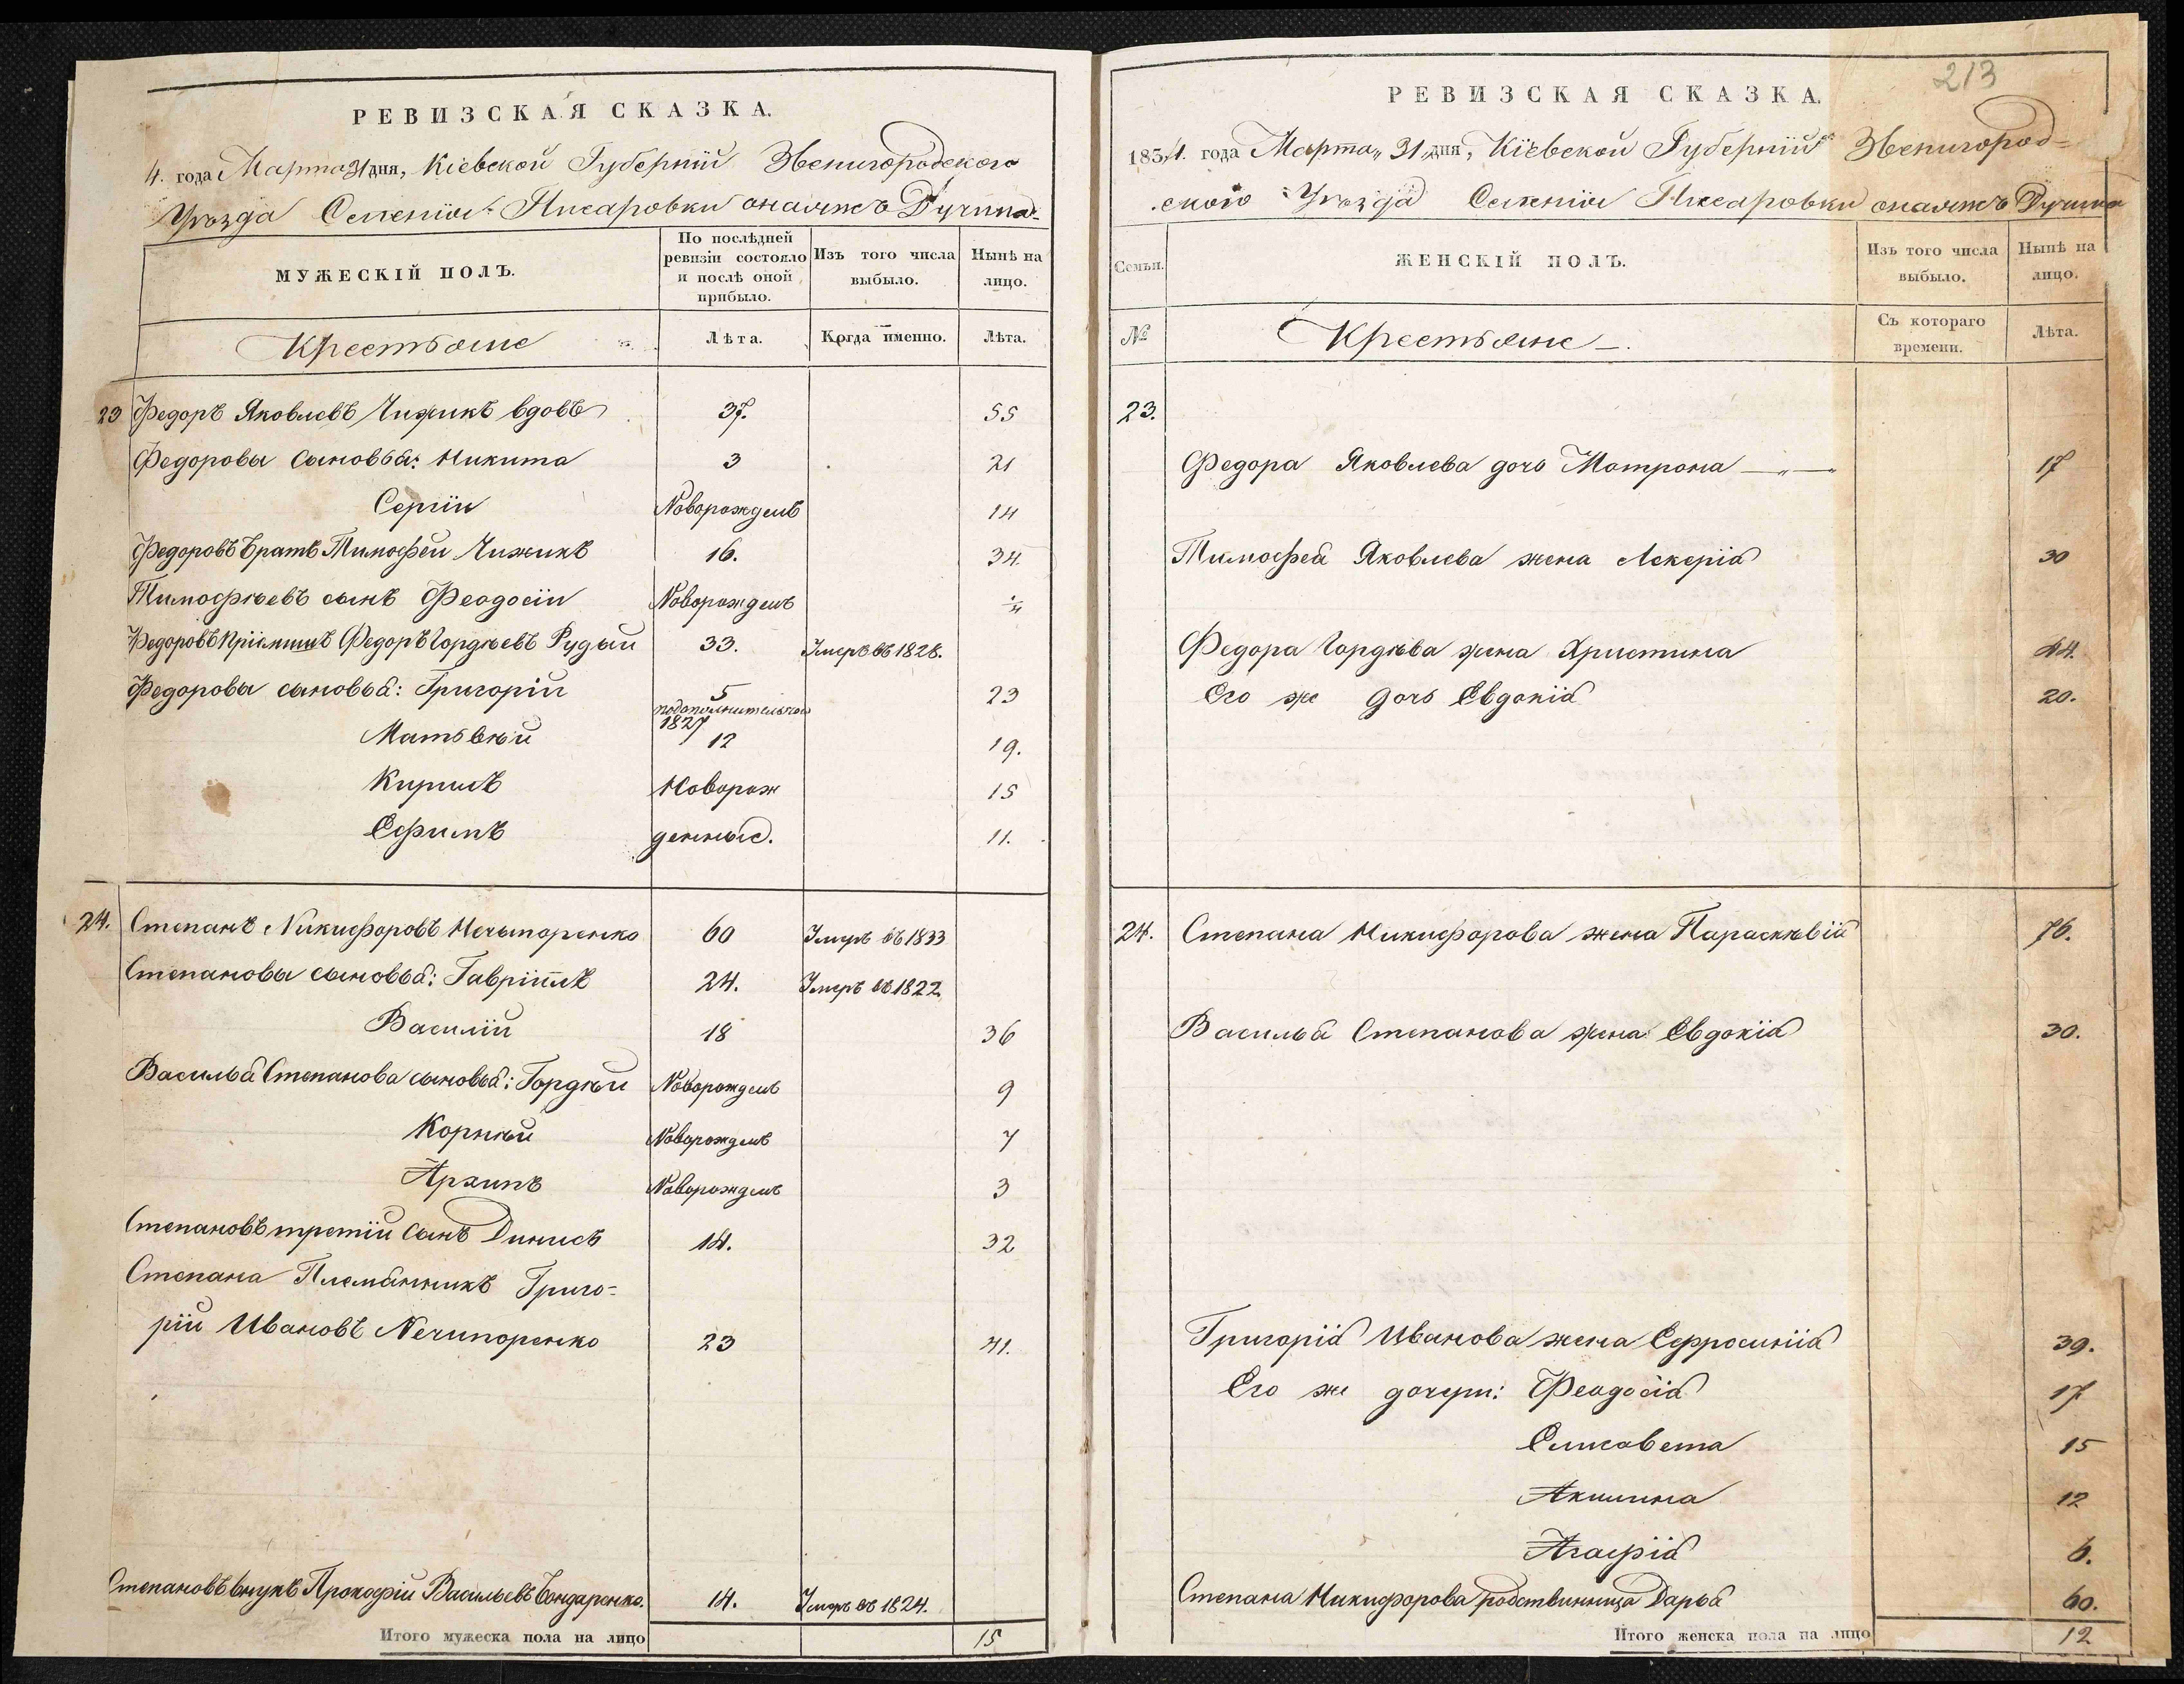 РЕВИЗСКАЯ СКАЗКА.
4. года Марта 31 дня, Кіевской Губерніи Звенигородского
Уѣзда Селенія Писаровки онаяжъ Дучина
МУЖЕСКІЙ ПОЛЪ.
По послѣдней ревизіи состояло и послѣ оной прибыло.
Изъ того числа выбыло.
Нынѣ на лицо.
Крестьяне
Лѣта.
Когда именно.
Лѣта.
23 Федоръ Яковлевъ Чижикъ вдовъ 37. 55
Федоровы сыновья: Никита 3 21
Сергій Новорожденъ 14
Федоровъ братъ Тимофей Чижикъ 16. 34.
Тимофѣевъ сынъ Феодосій Новорожденъ
Федоровъ Пріймышъ Федоръ Гордѣевъ Рудый 33. Умеръ въ 1828.
Федоровы сыновья: Григорій 5 23
подополнительной
1827
Матвѣй 12 19.
Кирилъ Новорож 15
Ефимъ денные. 11.
24. Степанъ Никифоровъ Нечыпоренко 60 Умеръ въ 1833
Степановы сыновья: Гавріилъ 24. Умеръ въ 1822
Василій 18 36
Василья Степанова сыновья: Гордѣй Новорожденъ 9
Корнѣй Новорожденъ 7
Архипъ Новорожденъ 3
Степановъ третій сынъ Динисъ 14. 32
Степана Племянникъ Григо-
рій Ивановъ Нечипоренко 23 41.
Степановъ внукъ Прокофій Васильевъ Бондаренко. 14. Умеръ въ 1824.
Итого мужеска пола на лицо 15
213
РЕВИЗСКАЯ СКАЗКА.
1834. года Марта 31 дня, Кіевской Губерніи Звенигород-
ского Уѣзда Селенія Писаровки онаяжъ Дучина
Семьи.
ЖЕНСКІЙ ПОЛЪ.
Изъ того числа выбыло.
Нынѣ на лицо.
№
Крестьяне
Съ котораго времени.
Лѣта.
23.
Федора Яковлева дочь Мотрона 17
Тимофея Яковлева жена Лскерія 30
Федора Гордѣва жена Христина 44.
Его же дочь Евдокія 20.
24. Степана Никифорова жена Параскѣвія 76.
Василья Степанова жена Евдокія 30.
Григорія Иванова жена Ефросинія 39.
Его же дочери: Феодосія 17
Елисавета 15
Акилина 12
Агафія 6.
Степана Никифорова родственница Дарья 60.
Итого женска пола на лицо 12